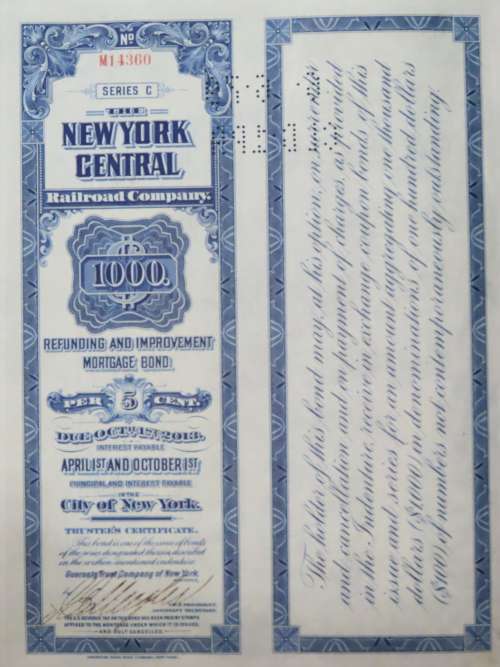 No
M14360
SERIES C
THE
NEW YORK
CENTRAL
Railroad Company.
1000.
REFUNDING AND IMPROVEMENT
MORTGAGE BOND
PER 5 CENT.
DUE OCT. 1ST, 2013.
INTEREST PAYABLE
APRIL 1ST AND OCTOBER 1ST
PRINCIPAL AND INTEREST PAYABLE
IN THE
City of New York.
TRUSTEE'S CERTIFICATE.
This bond is one of the series of bonds
of the issue designated therein, described
in the within-mentioned indenture.
Guaranty Trust Company of New York,
The holder of this bond may, at his option, on surrender
and cancellation and on payment of charges, as provided
in the Indenture, receive in exchange coupon bonds of this
issue and series for an amount aggregating one thousand
dollars ($1000) in denominations of one hundred dollars
($100) numbers not contemporaneously outstanding.